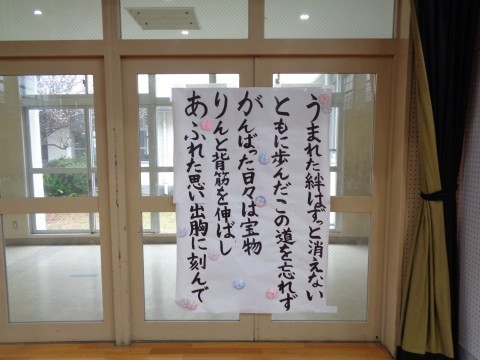 うまれた絆はずっと消えない
ともに歩んだこの道を忘れず
がんばった日々は宝物
りんと背筋を伸ばし
あふれた思い出胸に刻んで